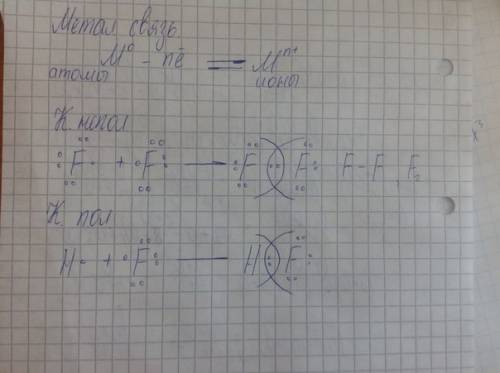 Метал связь
M⁰ - nē ⇌ Mⁿ⁺
атомы ионы
К непол
F + F → F F F-F F₂
К пол
H + F — H F